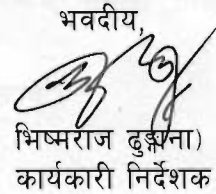 भवदीय,
भिष्मराज ढुङ्गाना)
कार्यकारी निर्देशक